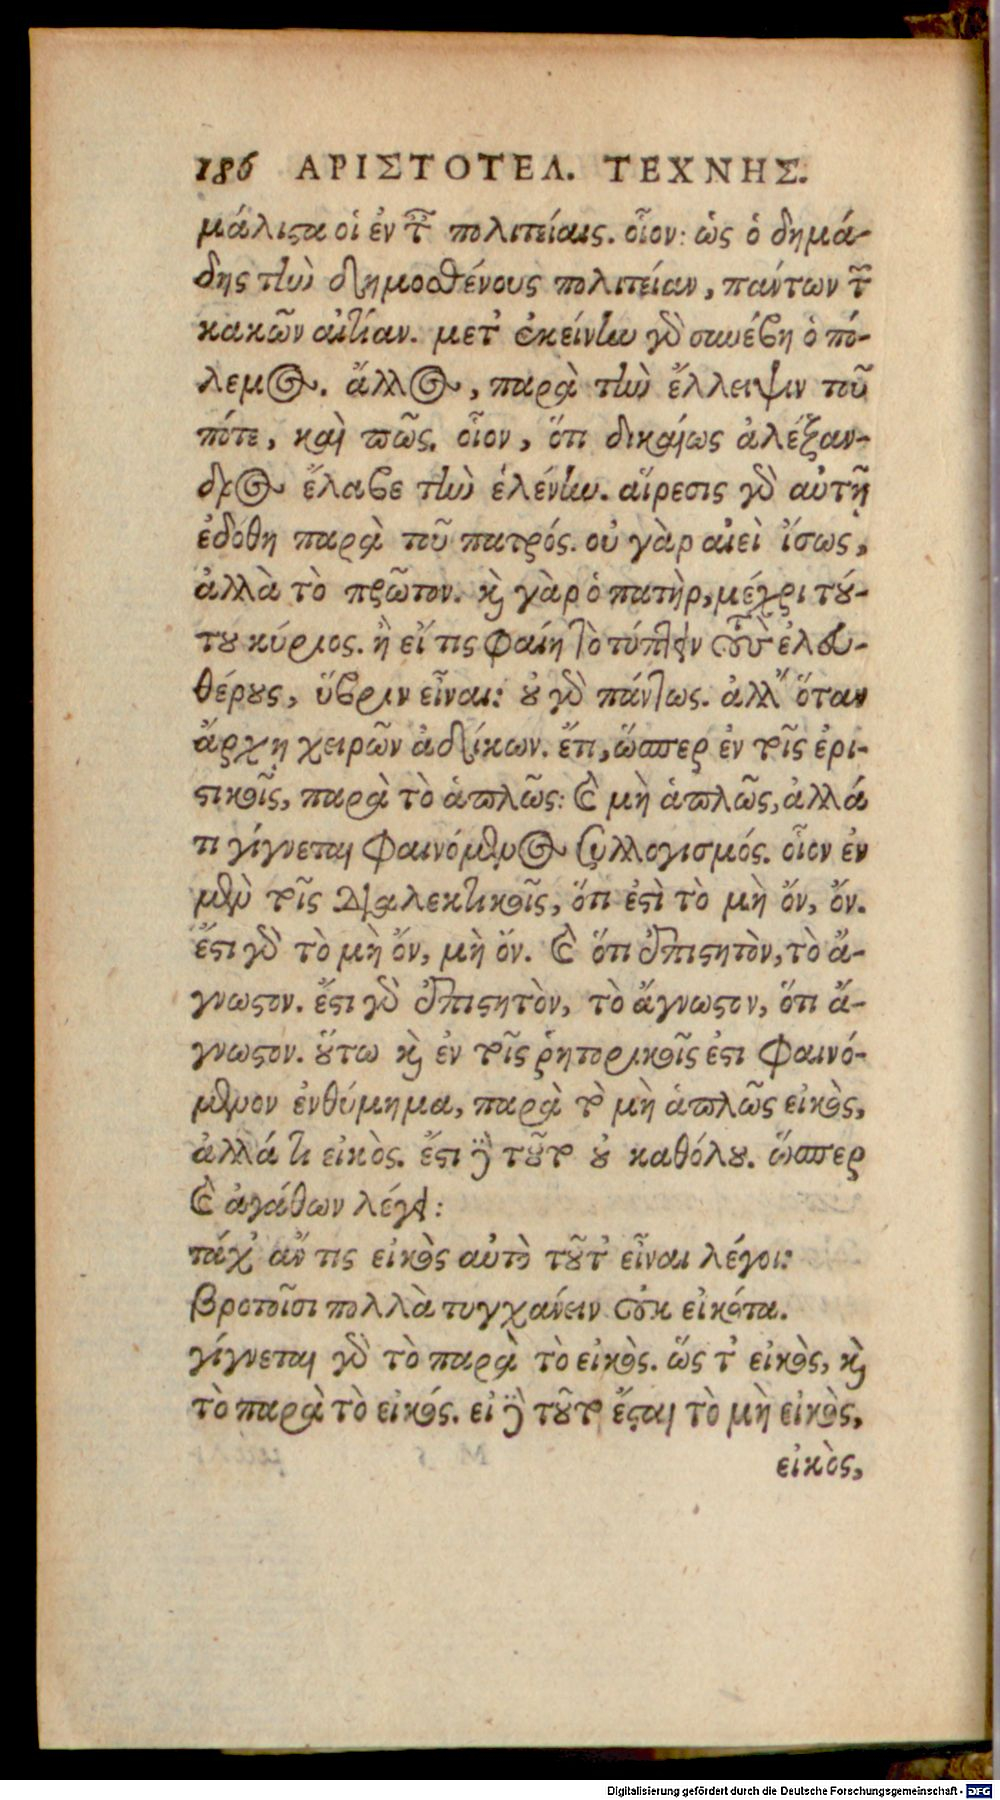 186 ΑΡΙΣΤΟΤΕΛ. ΤΕΧΝΗΣ.
μάλιϛα οἱ ἐν τ͂ πολιτείαις. οἷον: ὡς ὁ δημά-
δης τὴν δημοσθένους πολιτείαν, πάντων τ͂
κακῶν αἰτίαν. μετ᾽ ἐκείνην γὸ συνέβη ὁ πό-
λεμος. ἄλλος, παρὰ τὴν ἔλλειψιν τοῦ
πότε, καὶ πῶς. οἷον, ὅτι δικαίως ἀλέξαν-
δρος ἔλαβε τὴν ἑλένην. αἵρεσις γὸ αὐτῇ
ἐδόθη παρὰ τοῦ πατρός. οὐ γὰρ αἰεὶ ἴσως,
ἀλλὰ τὸ πρῶτον. κ̀ γὰρ ὁ πατὴρ, μέχρι τȣ́-
τȣ κύριος. ἢ εἴ τις φαίη τὸ τύπτειν τοὺς ἐλευ-
θέρȣς, ὕβριν εἶναι: ȣ̓ γὸ πάντως. ἀλλ᾽ ὅταν
ἄρχῃ χειρῶν ἀδίκων. ἔτι, ὥσπερ ἐν τοῖς ἐρι-
ϛικοῖς, παρὰ τὸ ἁπλῶς: καὶ μὴ ἁπλῶς, ἀλλά
τι γίγνεται φαινόμενος συλλογισμός. οἷον ἐν
μὲν τοῖς διαλεκτικοῖς, ὅτι ἐϛὶ τὸ μὴ ὄν, ὄν.
ἔϛι γὸ τὸ μὴ ὄν, μὴ ὄν. καὶ ὅτι ἐπιϛητὸν, τὸ ἄ-
γνωϛον. ἔϛι γὸ ἐπιϛητὸν, τὸ ἄγνωϛον, ὅτι ἄ-
γνωϛον. ȣ̔́τω κ̀ ἐν τοῖς ῥητορικοῖς ἐϛι φαινό-
μενον ἐνθύμημα, παρὰ τὸ μὴ ἁπλῶς εἰκὸς,
ἀλλά τι εἰκὸς. ἔϛι δὲ τȣ͂το ȣ̓ καθόλȣ. ὥσπερ
καὶ ἀγάθων λέγει:
τάχ᾽ ἄν τις εἰκὸς αὐτὸ τȣ͂τ᾽ εἶναι λέγοι:
βροτοῖσι πολλὰ τυγχάνειν οὐκ εἰκότα.
γίγνεται γὸ τὸ παρὰ τὸ εἰκὸς. ὥς τ᾽ εἰκὸς, κ̀
τὸ παρὰ τὸ εἰκός. εἰ δὲ τȣ͂το ἔϛαι τὸ μὴ εἰκὸς,
εἰκὸς,
Digitalisierung gefördert durch die Deutsche Forschungsgemeinschaft - DFG